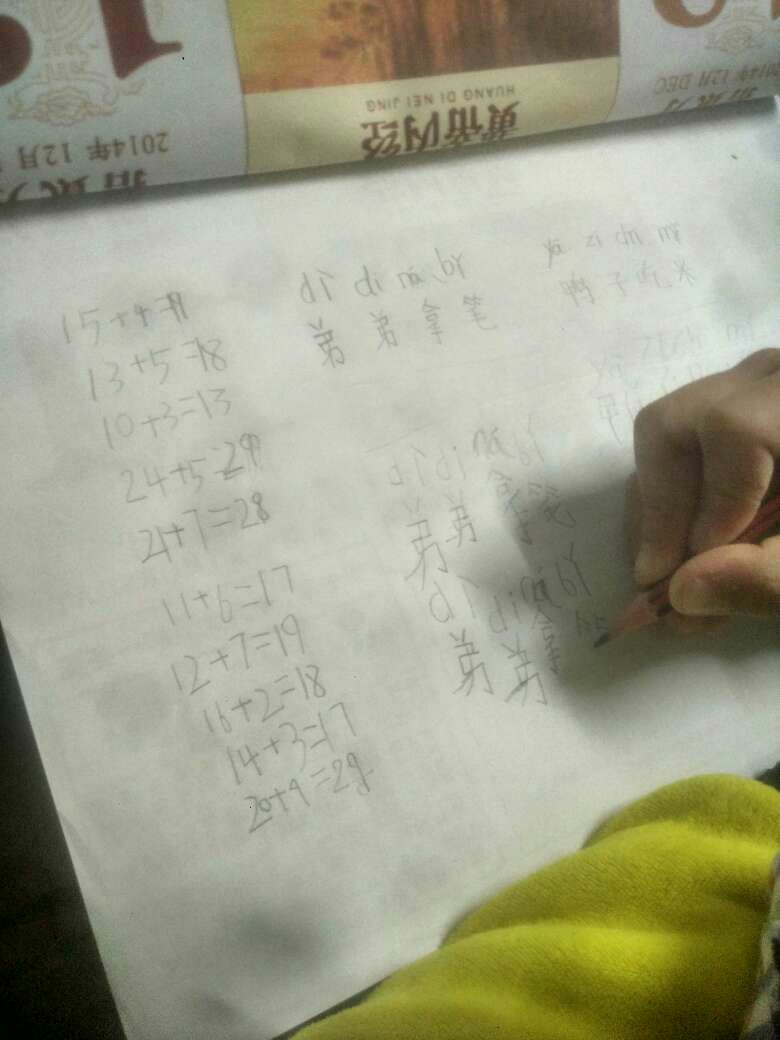 2014年 12月
HUANG DI NEI JING
黄帝内经
2014年 12月 DEC
15+4=
13+5=18
10+3=13
24+5=29
21+7=28
11+6=17
12+7=19
16+2=18
14+3=17
20+9=29
dì di ná bǐ
弟弟拿笔
yā zi chī mǐ
鸭子吃米
dì di ná bǐ
弟弟拿笔
dì di ná bǐ
弟弟拿